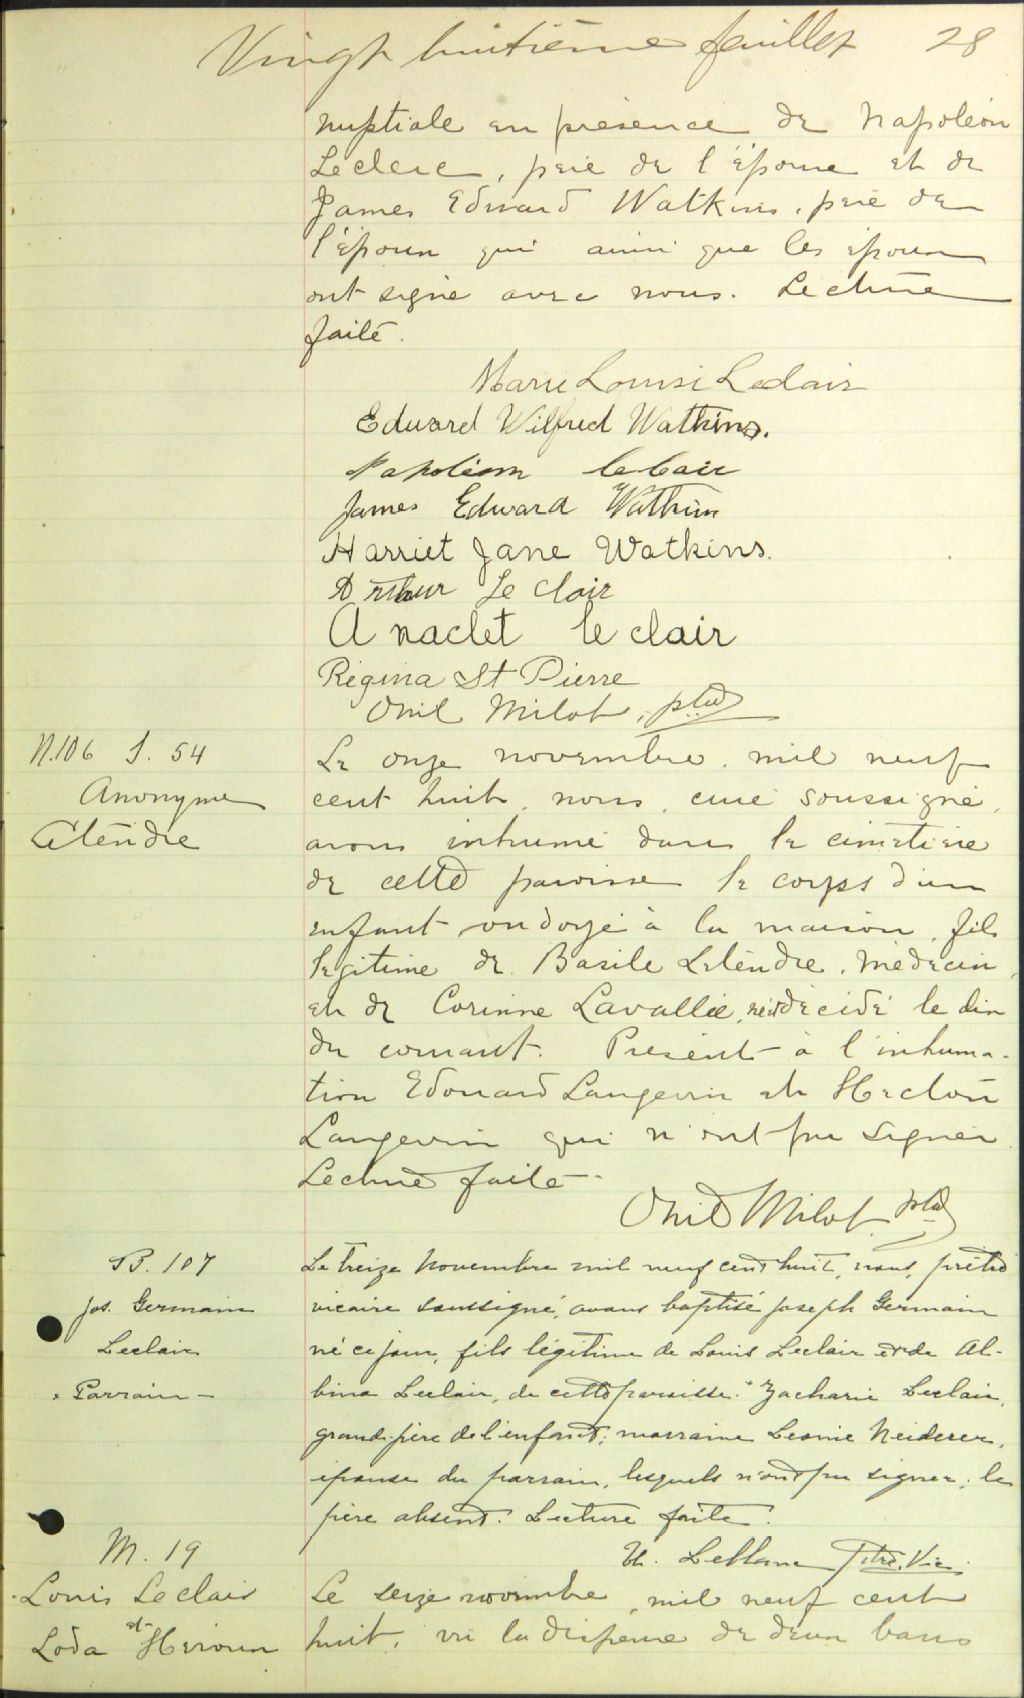 Vingt huitième feuillet 28
nuptiale en présence de Napoléon
Leclerc, père de l'épouse et de
James Edward Watkins, père de
l'époux qui ainsi que les époux
ont signé avec nous. Lecture
faite.
Marie Louise Leclair
Edward Wilfred Watkins.
Napoléon leclair
James Edward Watkins
Harriet Jane Watkins.
Arthur Le Clair
Anaclet le clair
Régina St Pierre
Onil Milot, ptre
N.106 S. 54
Anonyme
Létendre
Le onze novembre, mil neuf
cent huit, nous, curé soussigné,
avons inhumé dans le cimetière
de cette paroisse le corps d'un
enfant ondoyé à la maison, fils
légitime de Basile Letendre, médecin,
et de Corinne Lavallée, décédé le dix
du courant. Présents à l'inhuma-
tion Edouard Langevin et Hector
Langevin qui n'ont pu signer
Lecture faite
Onil Milot ptre
B. 107
Jos. Germain
Leclair
x Parrain -
Le treize Novembre mil neuf cent huit, nous, prêtre
vicaire soussigné, avons baptisé Joseph Germain
né ce jour, fils légitime de Louis Leclair et de Al-
bina Leclair, de cette paroisse. x Zacharie Leclair,
grand-père de l'enfant; marraine Leonie Neiderer,
épouse du parrain, lesquels n'ont pu signer, le
père absent. Lecture faite.
Leblanc Ptre. Vic.
M. 19
Louis Leclair
et
Loda Heroux
Le seize novembre, mil neuf cent
huit, vu la dispense de deux bans